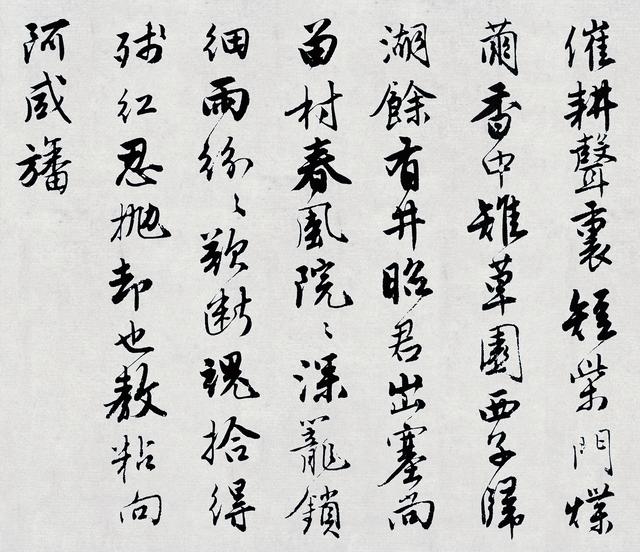 催耕聲裏短柴門煠
繭香中雉草園西子歸
湖餘有井昭君出塞尚
留村春風院〻深籠鎖
細雨紛〻欲斷魂拾得
殘紅忍拋却也教粘向
阿咸旛